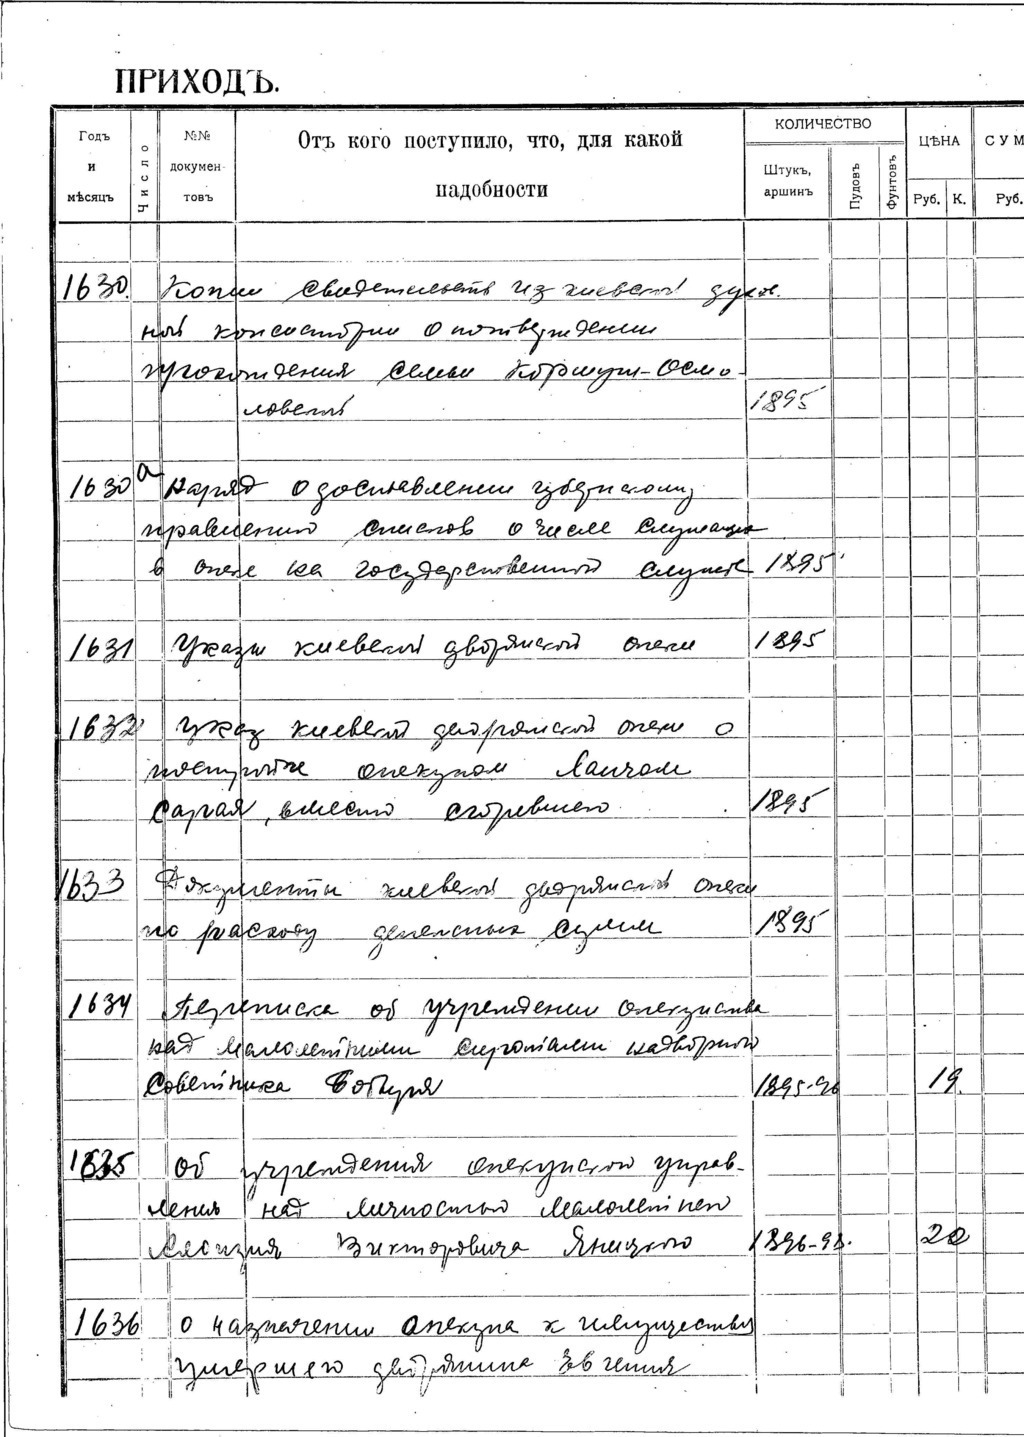 ПРИХОДЪ.
Годъ и мѣсяцъ
Число
№№ докумен-товъ
Отъ кого поступило, что, для какой надобности
КОЛИЧЕСТВО
Штукъ, аршинъ
Пудовъ
Фунтовъ
ЦѢНА
Руб. К.
СУМ
Руб.
1630. Копии свидетельств из киевской духов-
ной консистории о подтверждении
происхождения семьи Коршун-Осмо-
ловской 1895
1630а Наряд о доставлении губернскому
правлению списков о числе служащих
в опеке на государственной службе 1895
1631 Указы киевской дворянской опеки 1895
1632 Указ киевской дворянской опеки о
постройке опекуном
сарая, вместо сгоревшего 1895
1633 Документы киевской дворянской опеки
по расходу денежных сумм 1895
1634 Переписка об учреждении опекунства
над малолетними сиротами надворного
советника 1895-96 19.
1635 Об учреждения опекунского управ-
ления над личностью малолетнего
Викторовича Яницкого 1896-98. 20
1636 О назначении опекуна к имуществу
умершего дворянина